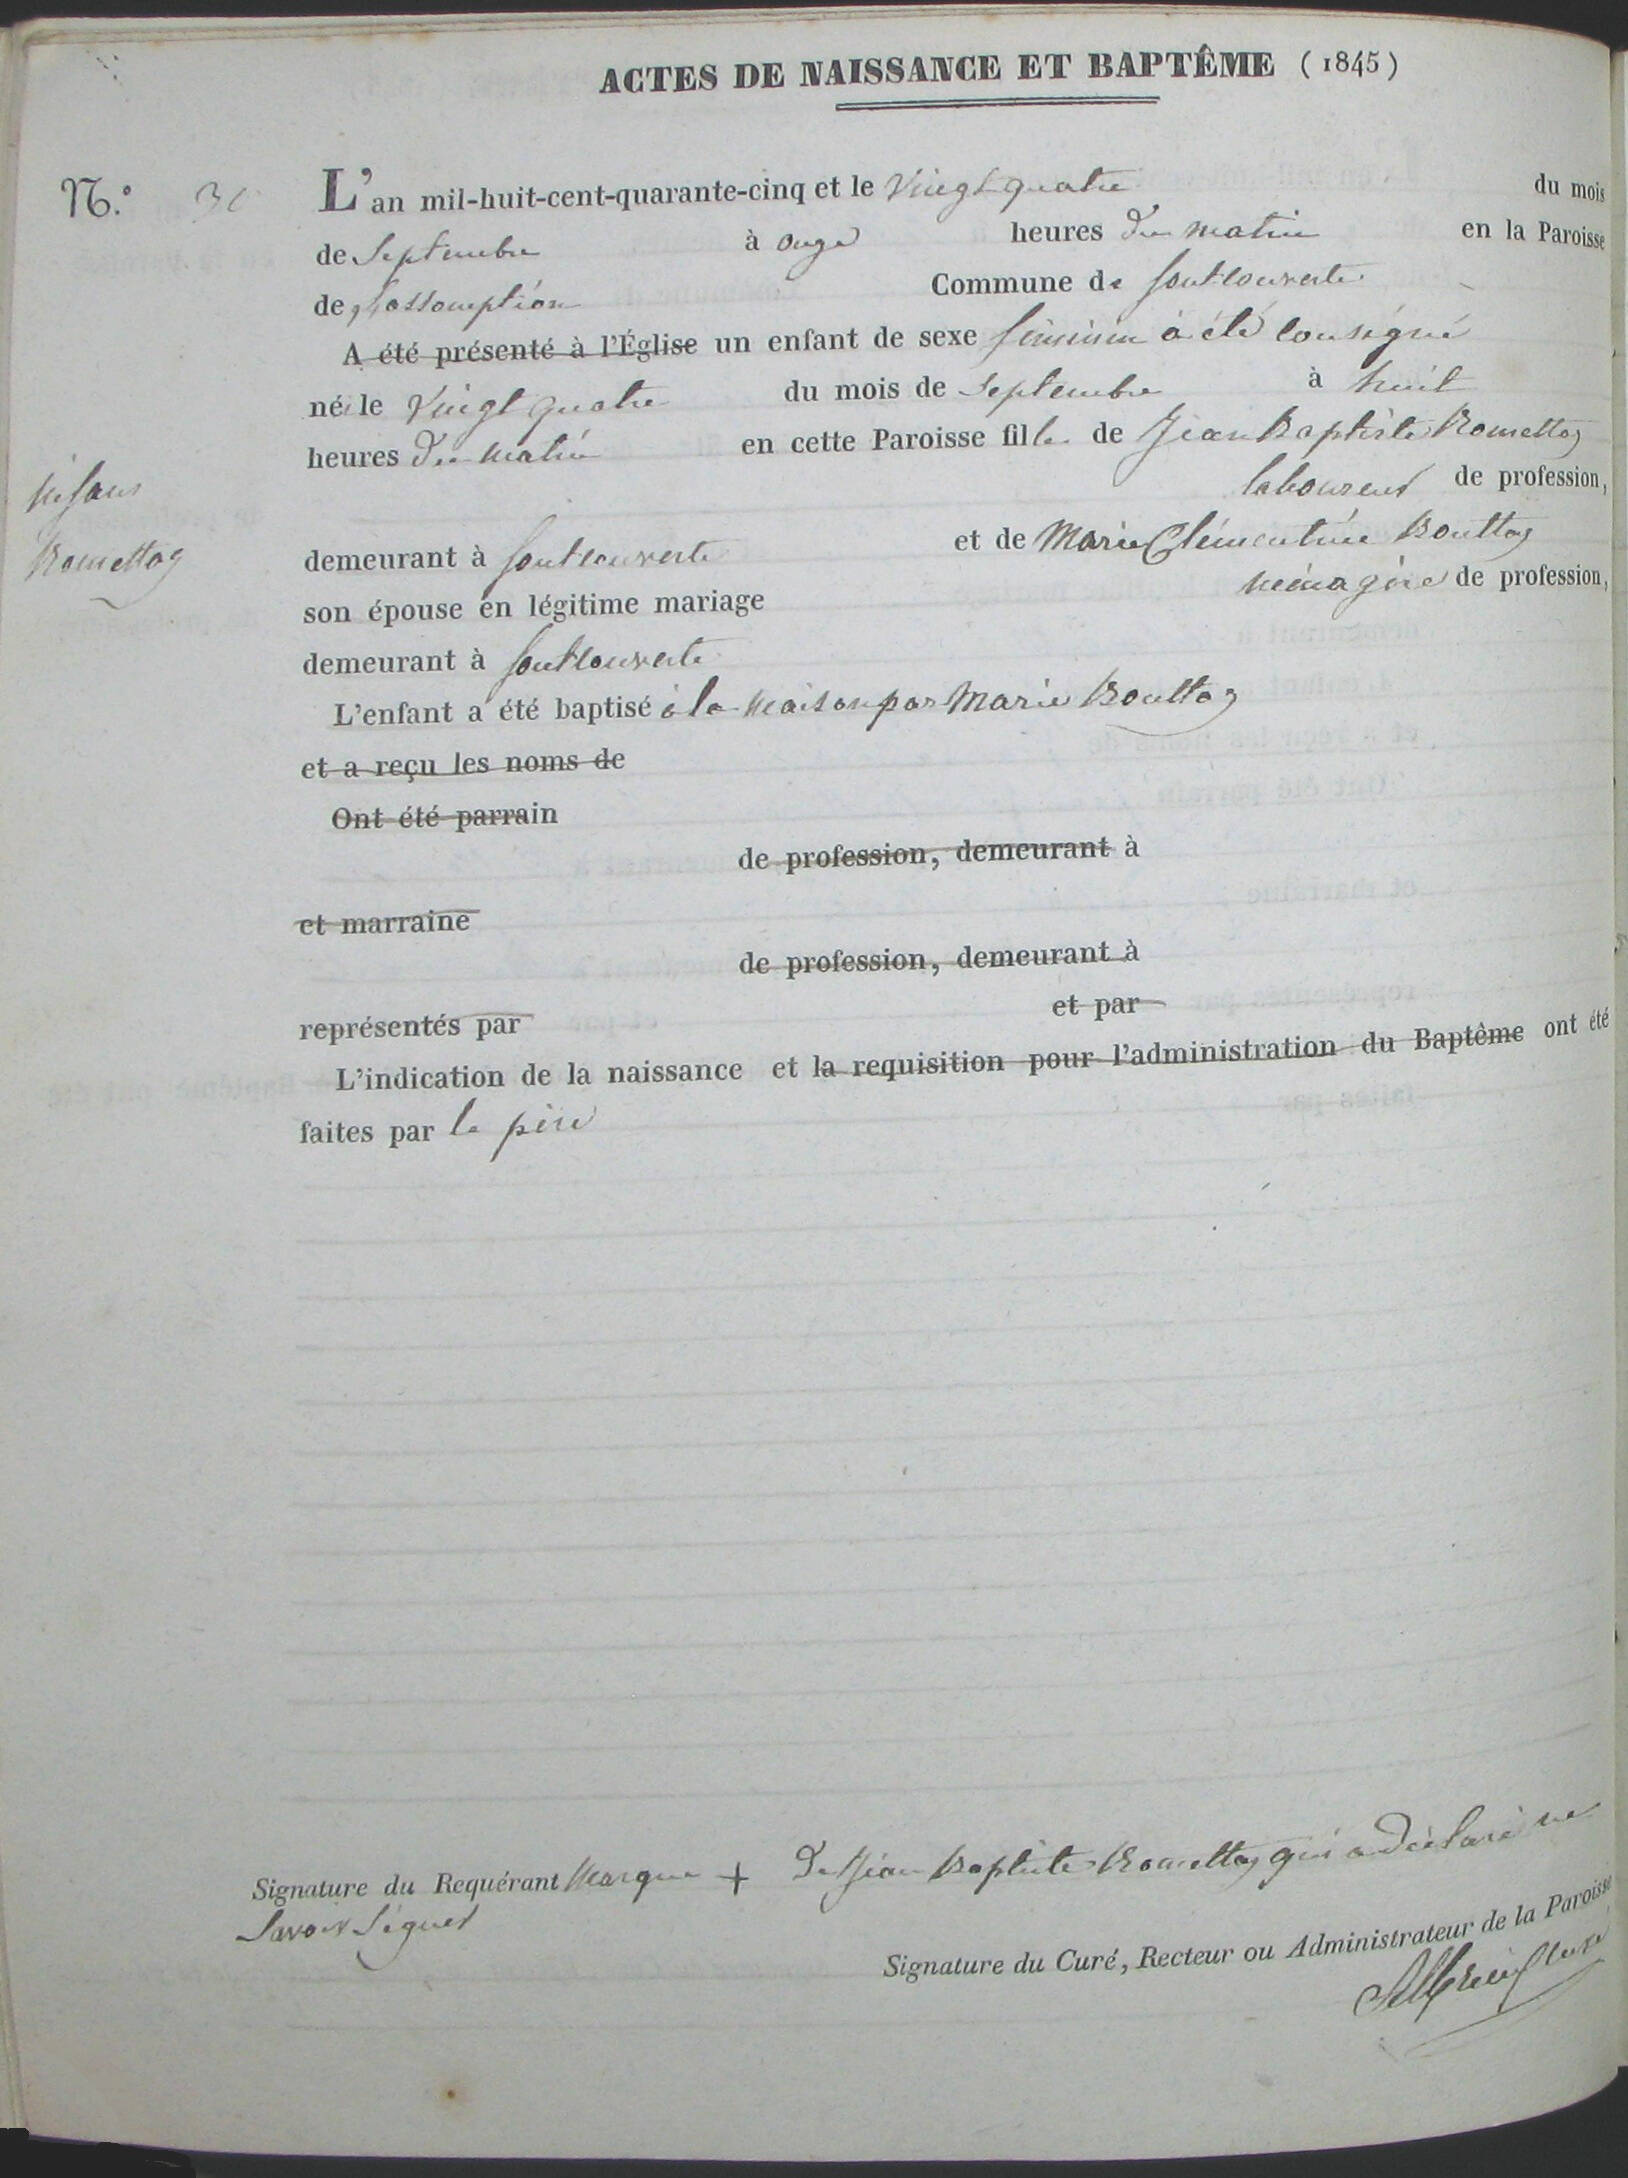 ACTES DE NAISSANCE ET BAPTÊME (1845)
N.º 30 L'an mil-huit-cent-quarante-cinq et le Vingt quatre du mois
de Septembre à onze heures Du matin en la Paroisse
de Commune de Fontcouverte
A été présenté à l'Église un enfant de sexe féminin a été consigné
né le Vingt quatre du mois de Septembre à huit
heures Du matin en cette Paroisse fille de Jean Baptiste Romettaz
laboureur de profession,
infans
demeurant à Fontcouverte et de Marie Clémentine Bouttaz
Romettaz
son épouse en légitime mariage ménagère de profession,
demeurant à Fontcouverte
L'enfant a été baptisé à la maison par Marie Bouttaz
et a reçu les noms de
Ont été parrain
de profession, demeurant à
et marraine
de profession, demeurant à
représentés par et par
L'indication de la naissance et la requisition pour l'administration du Baptême ont été
faites par le père
Signature du Requérant Marque + De Jean Baptiste Romettaz qui a Déclaré ne
Savoir Signer
Signature du Curé, Recteur ou Administrateur de la Paroisse